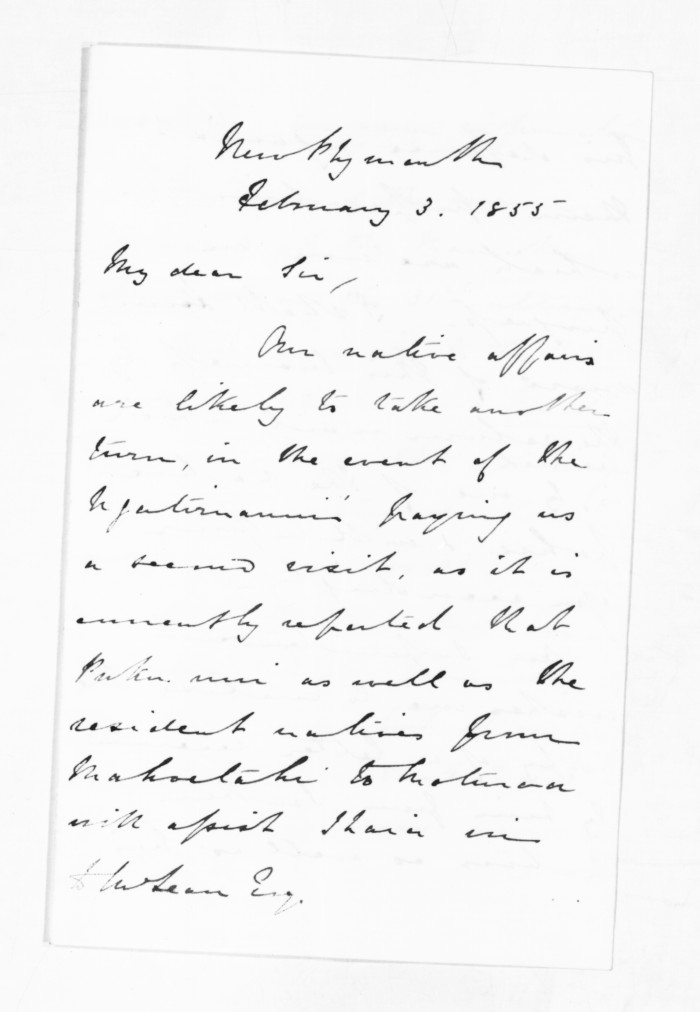 New Plymouth
February 3. 1855
My dear Sir,
Our native affairs
are likely to take another
turn, in the event of the
Ngatiruanui's paying us
a second visit, as it is
currently reported that
as well as the
resident natives from
Mahoetahi to Moturoa
will assist Ihaia in
D McLean Esq.